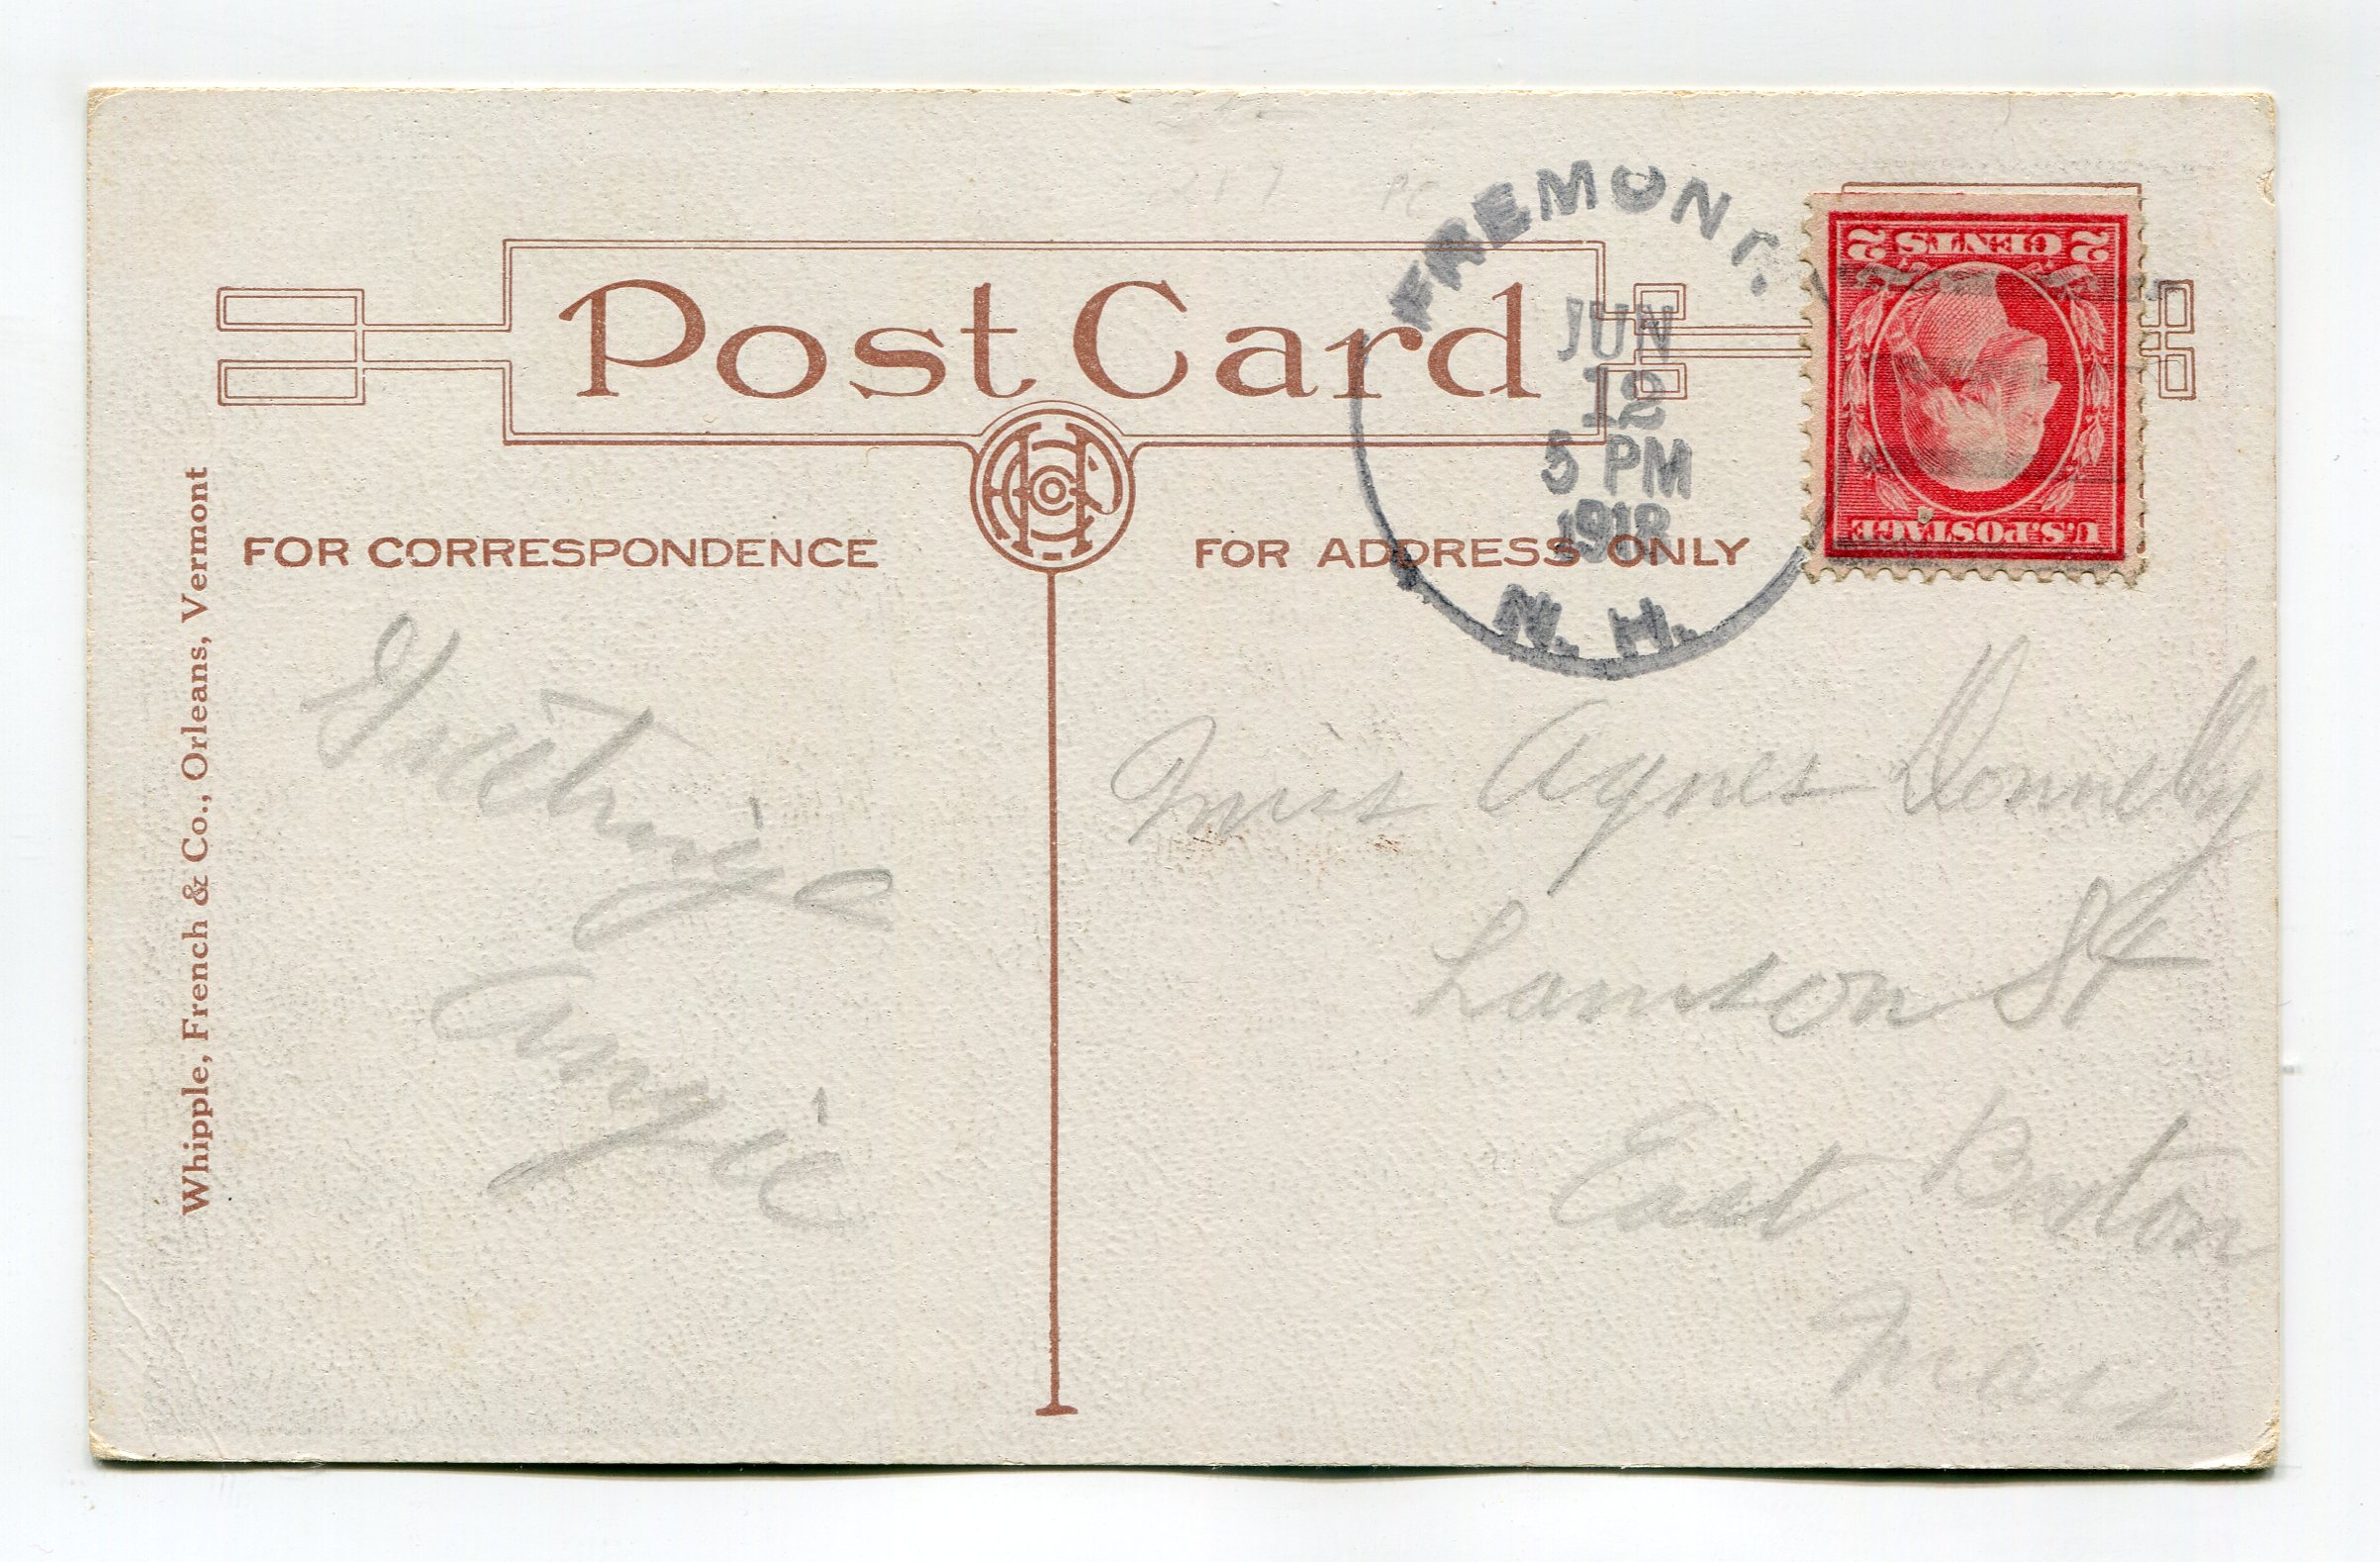 217 PC
Post Card
FREMONT.
JUN
12
5 PM
1918
N. H.
2 CENTS 2
U.S. POSTAGE
FOR CORRESPONDENCE
FOR ADDRESS ONLY
Whipple, French & Co., Orleans, Vermont
Greetings
Angie
Miss Agnes Donnelly
Lamson St
East Boston
Mass